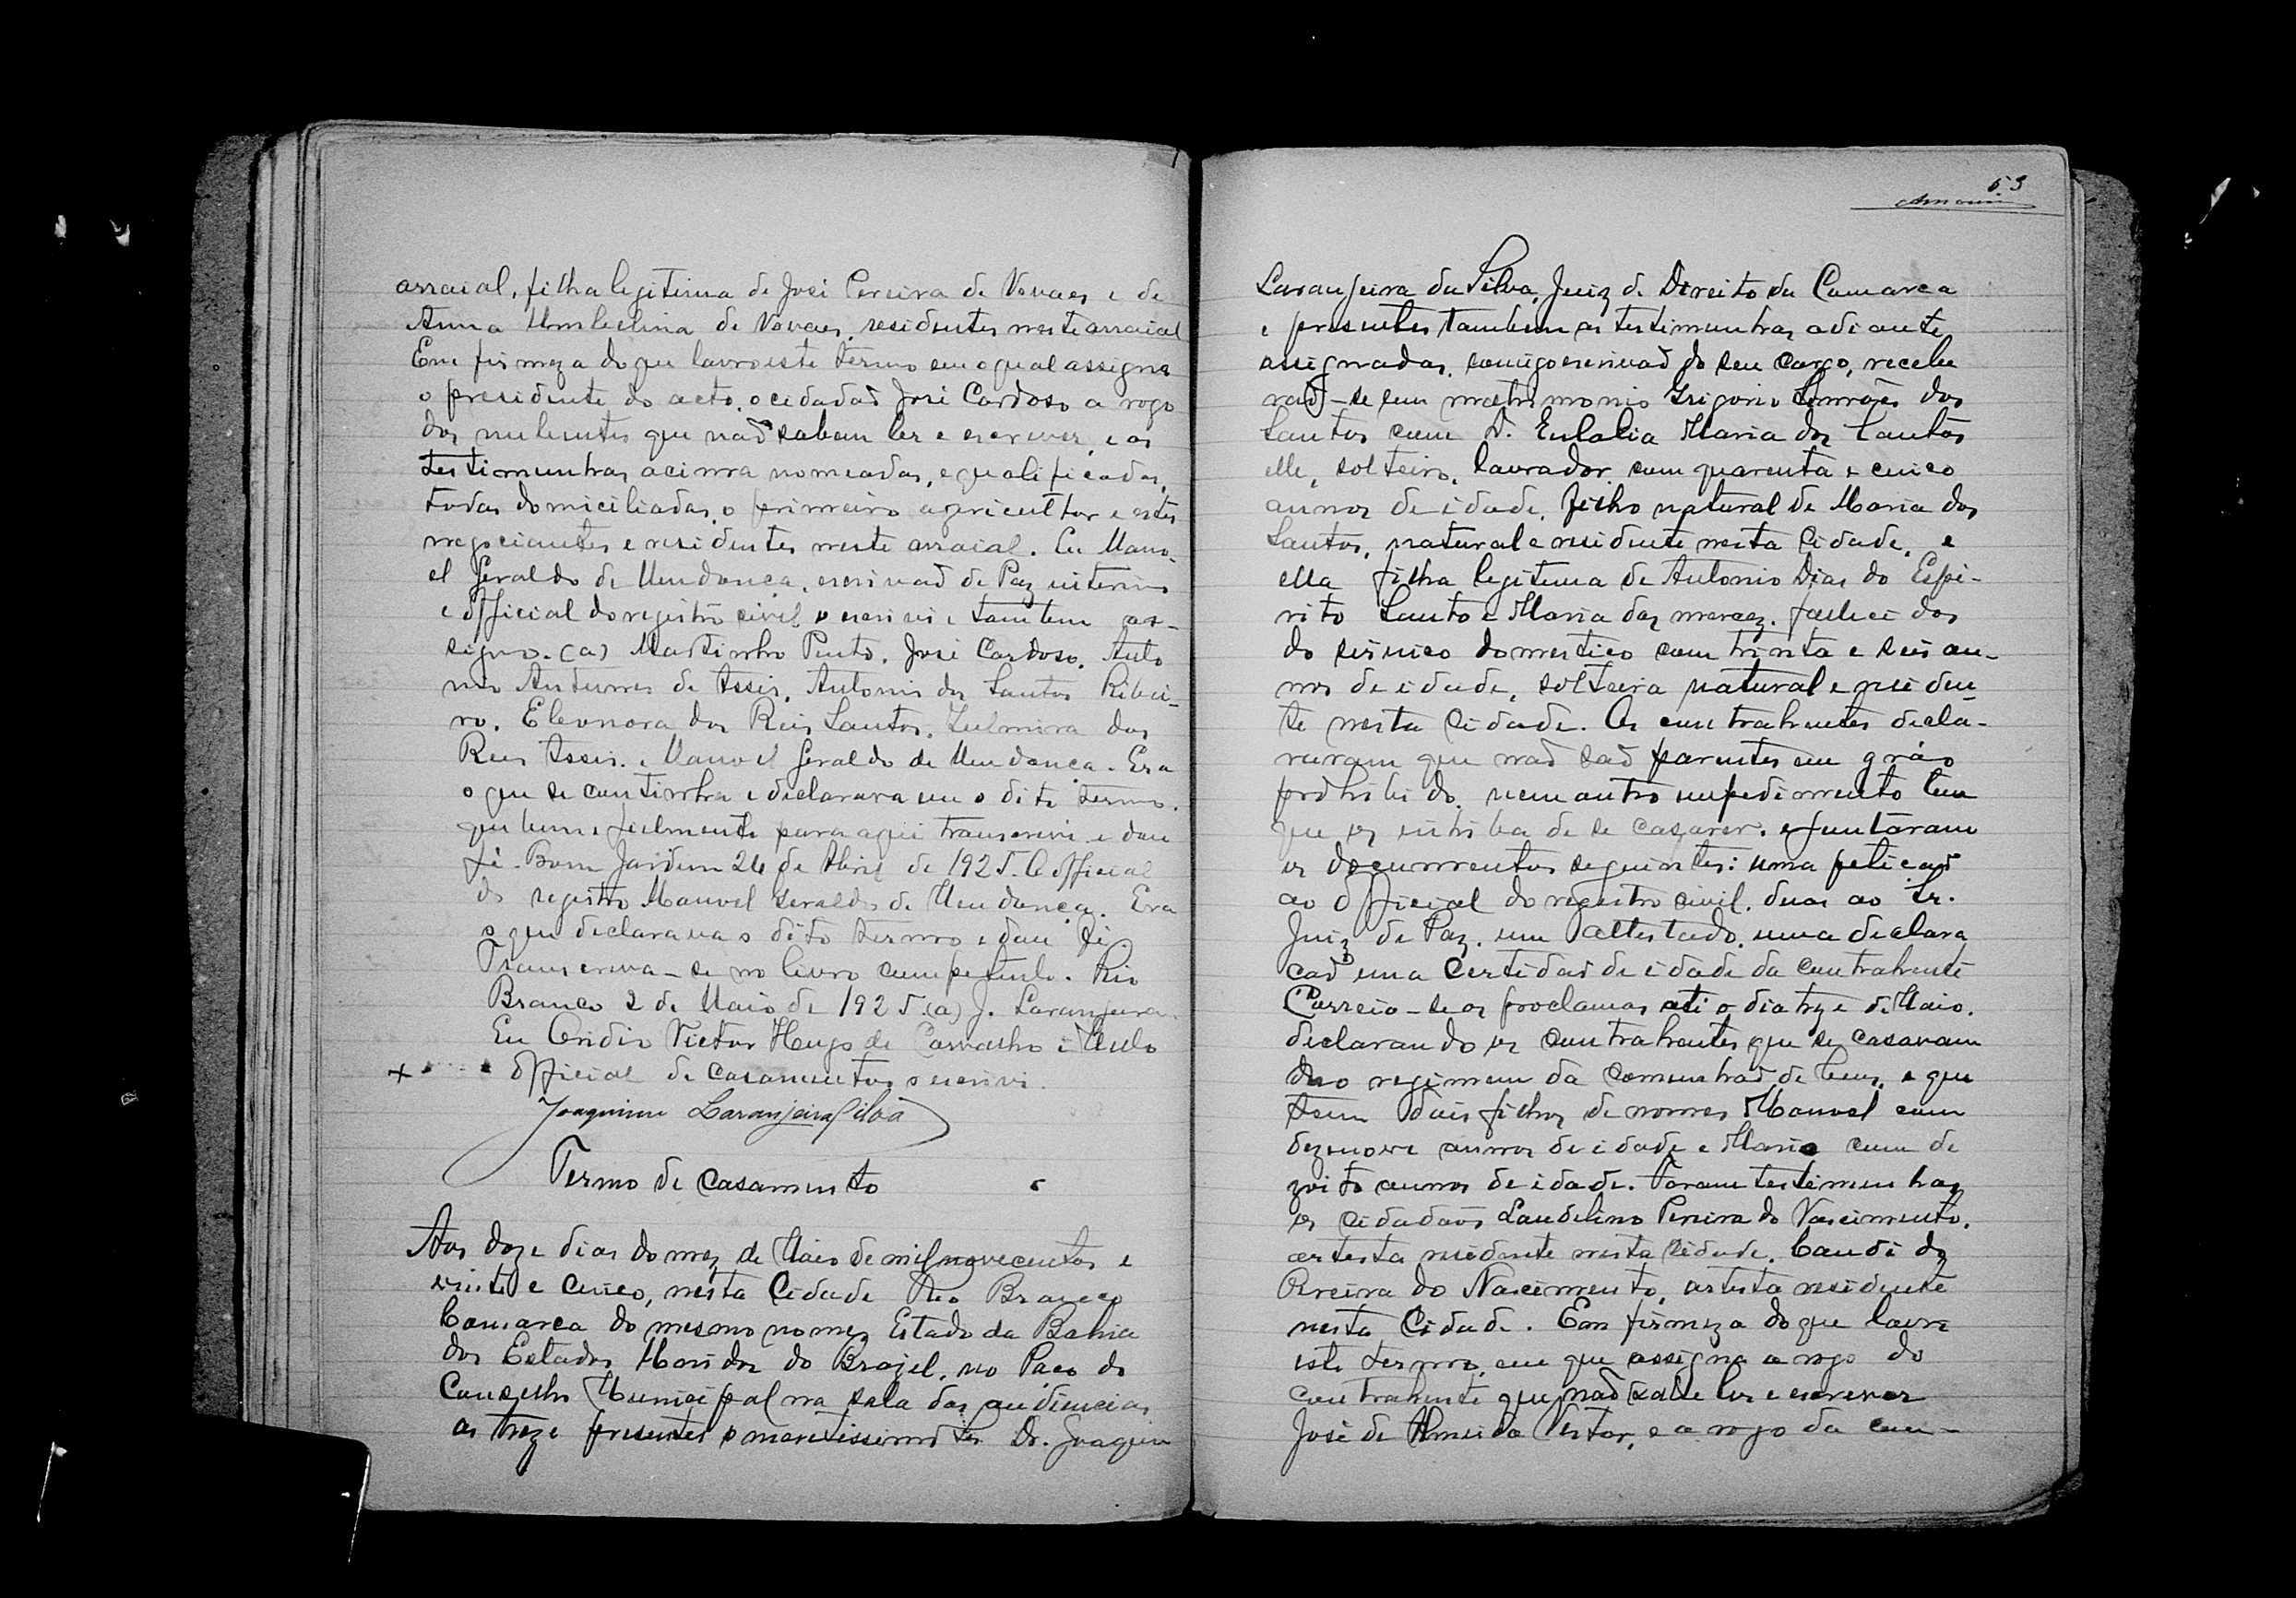 arraial, filha legitima de José Pereira de Novaes e de
Anna Umbelina de Novaes, residentes neste arraial
Em firmeza do que lavro este termo em o qual assigna
o presidente do acto, o cidadaõ José Cardoso a rogo
dos nubentes que naõ sabem ler e escrever, e as
testimunhas acima nomeadas, e qualificadas,
todas domiciliadas, o primeiro agricultor e estes
negociantes e residentes neste arraial. Eu Mano
el Geraldo de Mendonça, escrivaõ de Paz interino
e official do registro civil o escrivi e tambem as-
signo. (a) Martinho Pinto. José Cardoso. Anto
nio Antunes de Assis, Antonio dos Santos Ribei-
ro. Eleonora dos Reis Santos. Zulmira dos
Reis Assis. e Manoel Geraldo de Mendonça. Era
o que se continha e declarava em o dito termo.
que bem e fielmente para aqui transcrevi e dou
fé. Bom Jardim 24 de Abril de 1925. O official
do registro Manoel Geraldo de Mendonça. Era
o que declarava o dito termo e dou fé.
Transcreva-se no livro competente. Rio
Branco 2 de Maio de 1925. (a) J. Laranjeira.
Eu Victor Hugo de Carvalho e Mello
official de casamentos o escrivi.
Joaquim Laranjeira Silva
Termo de Casamento
Aos doze dias do mez de Maio de mil novecentos e
vinte e cinco, nesta Cidade Rio Branco
Comarca do mesmo nome, Estado da Bahia
dos Estados Unidos do Brazil, no Paço do
Conselho Municipal na sala das audiencias
as treze presentes o meretissimo Dr. Joaquim
53
Laranjeira da Silva, Juiz de Direito da Comarca
e presentes tambem as testimunhas adiante
assignadas, comigo escrivaõ do seu cargo, recebe
raõ-se em matrimonio Grigorio Simões dos
Santos com D. Eulalia Maria dos Santos
elle, solteiro, lavrador com quarenta e cinco
annos de idade, filho natural de Maria dos
Santos, natural e residente nesta Cidade, e
ella filha legitima de Antonio Dias do Espi-
rito Santo e Maria das mercez, fallecidos
do serviço domestico com trinta e seis an-
nos de idade, solteira natural e residen
te nesta Cidade. Os contrahentes decla-
raram que naõ saõ parentes em gráo
prohibido, nem outro impedimento tem
que os inhiba de se casarem. e juntaram
os documentos seguintes: uma petiçaõ
ao official do registro civil, duas ao Sr.
Juiz de Paz, um attestado, uma declara
çaõ uma Certidaõ de idade da contrahente
Correo-se os proclamas até o dia treze de Maio.
declarando os contrahentes que se casavam
no regimem da comunhaõ de bens, e que
tem dois filhos de nomes Manoel com
dezenove annos de idade e Maria com de
zoito annos de idade. Foram testimunhas
os cidadaõs Laudelino Pereira do Nascimento,
artista residente nesta Cidade, Candido
Pereira do Nascimento, artista residente
nesta Cidade. Em firmeza do que lavro
este termo, em que assigna a rogo do
contrahente que naõ sabe ler e escrever
José de Almeida e a rogo da con-